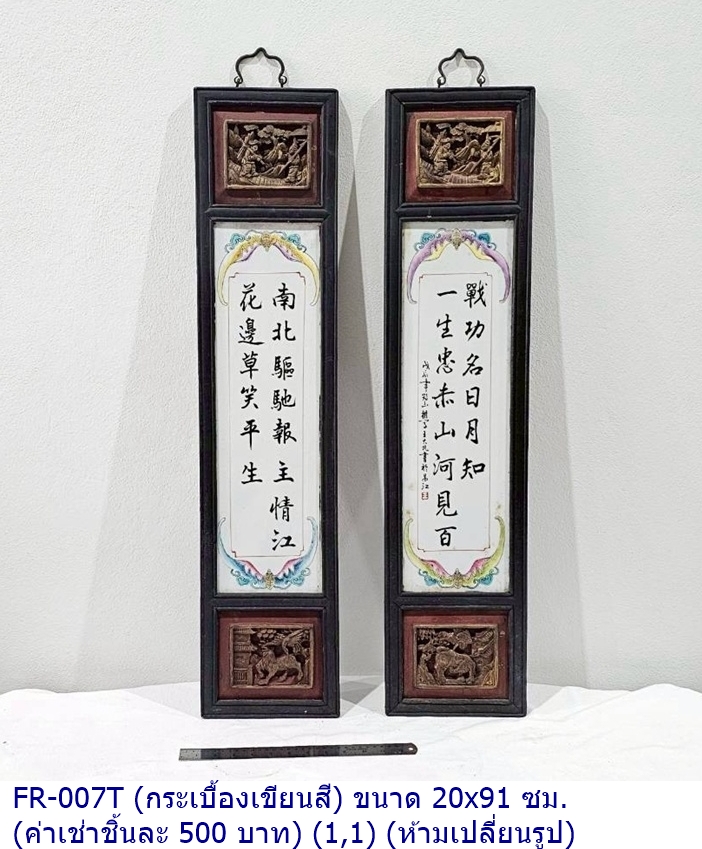 南北驅馳報主情江
花邊草笑平生
一生忠赤山河見百
戰功名日月知
FR-007T (กระเบื้องเขียนสี) ขนาด 20x91 ซม.
(ค่าเช่าชิ้นละ 500 บาท) (1,1) (ห้ามเปลี่ยนรูป)